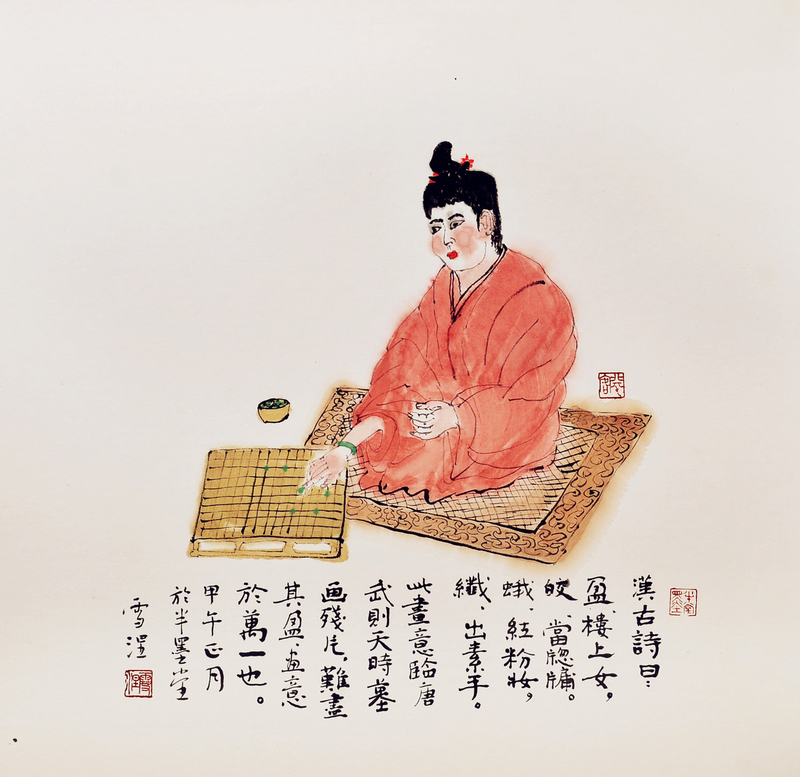 漢古詩曰：
盈、樓上女，
皎、當牕牖。
蛾、紅粉妝，
纖、出素手。
此畫意臨唐
武則天時墓
画殘片，難盡
其盈、畫意
於萬一也。
甲午正月
於半墨堂
雪